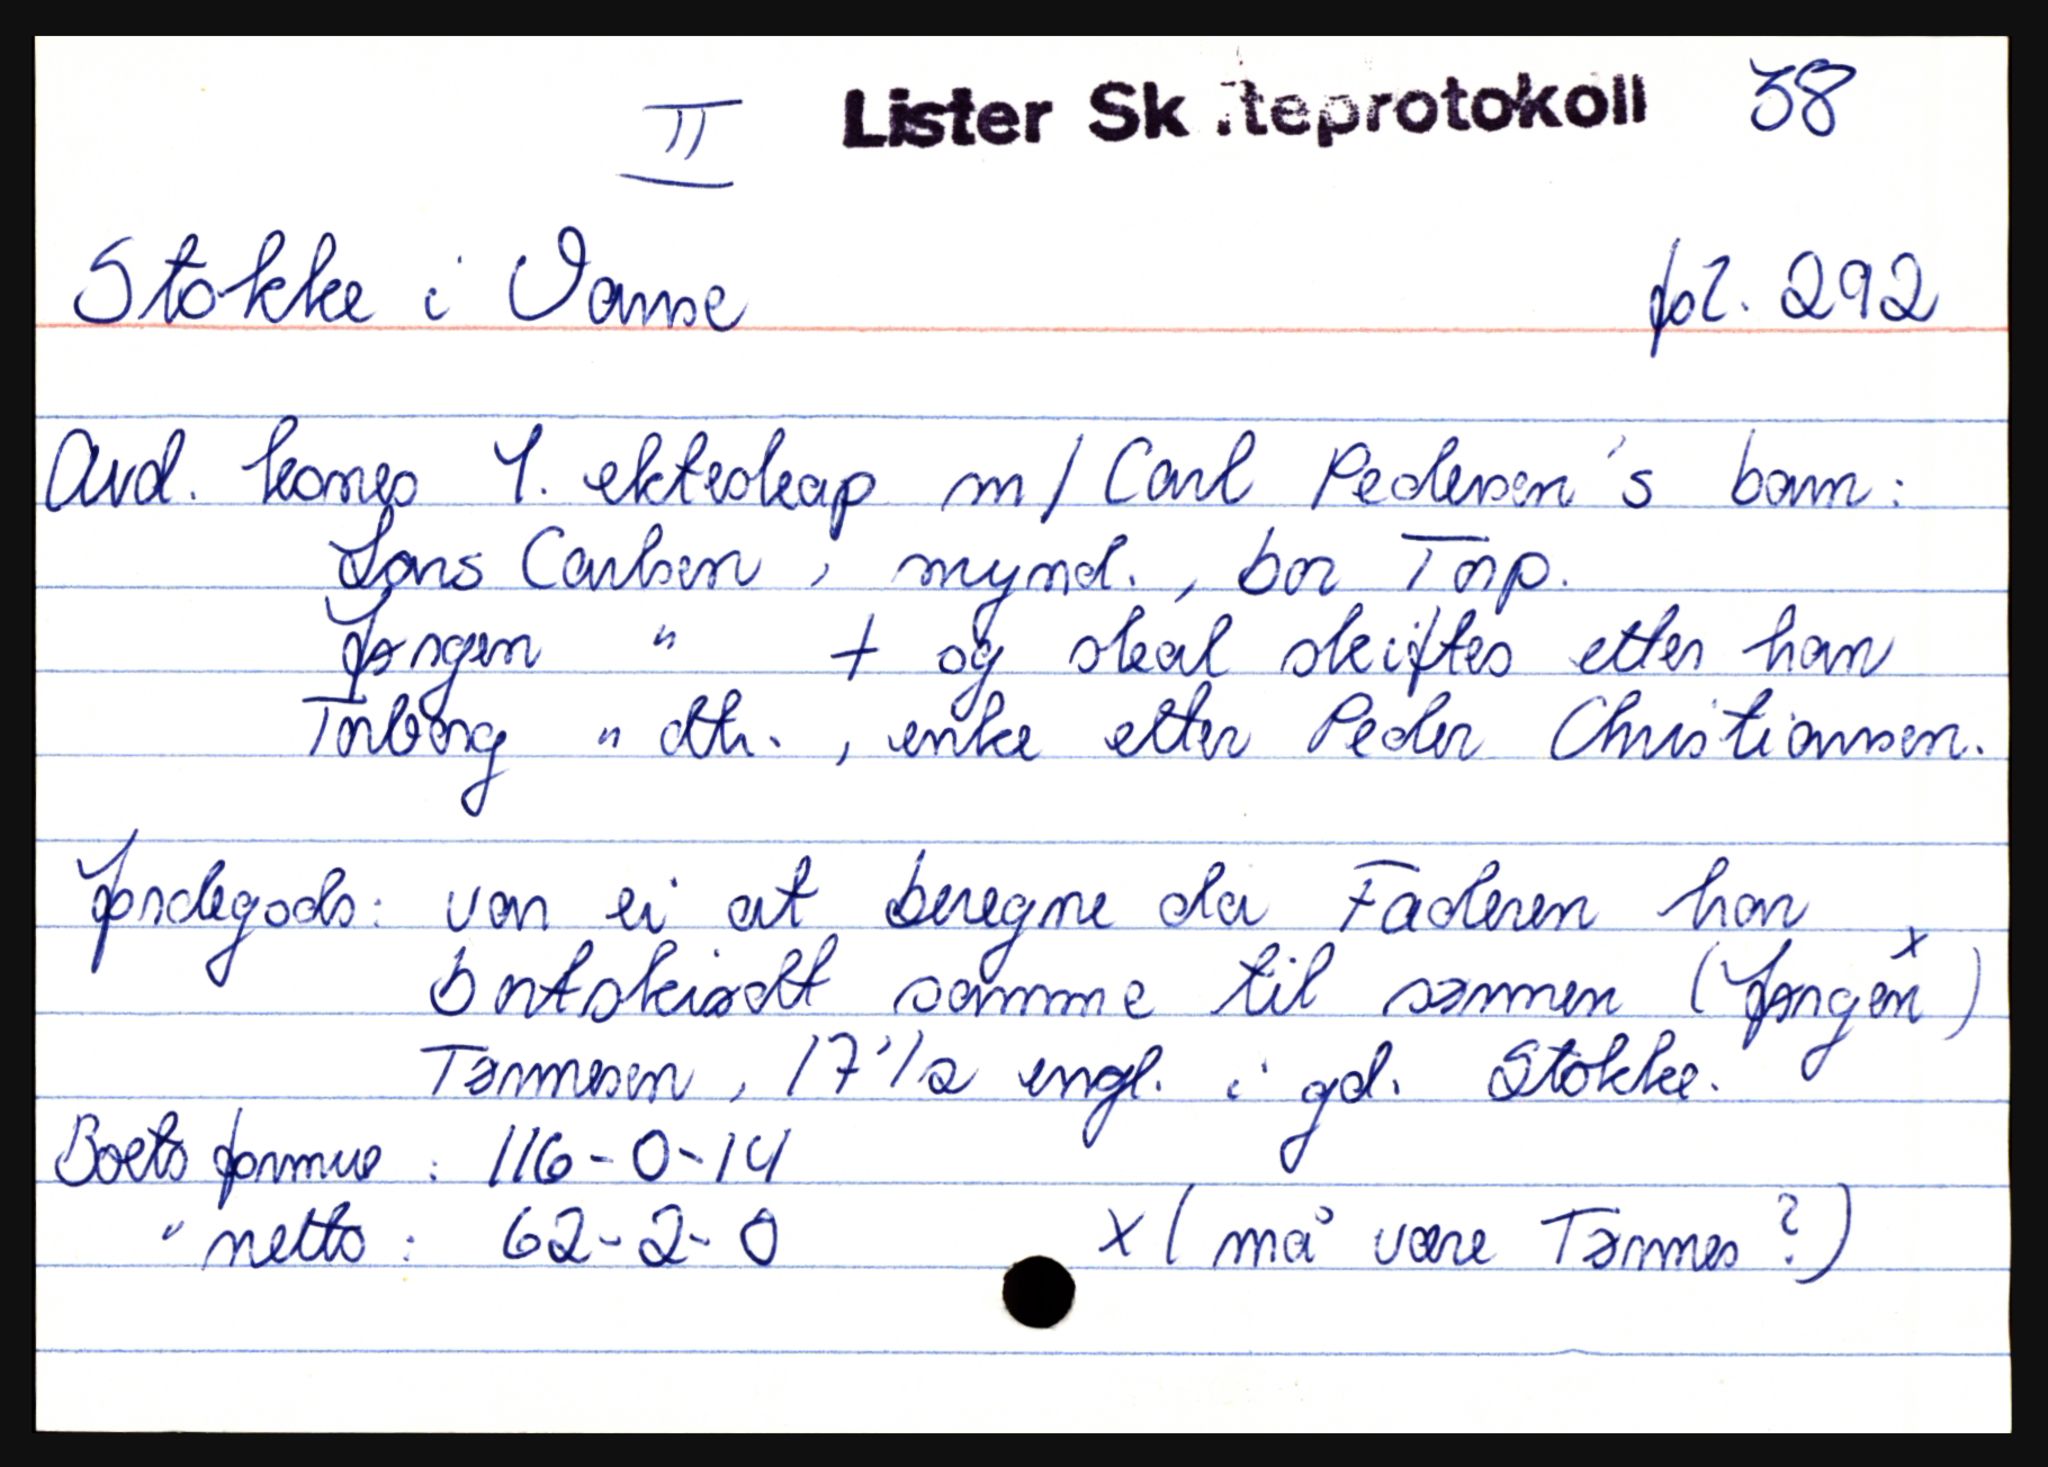 II Lister Skifteprotokoll 38
Stokke i Vanse fol. 292
Avd. kones 1. ekteskap m/ Carl Pedersen's barn:
Lars Carlsen, mynd., bor Torp.
Jørgen " + og skal skiftes etter han
Torborg " dtr., enke etter Peder Christiansen.
Jordegods: var ei at beregne da Faderen har
bortskiødt samme til sønnen (Jørgen x)
Tønnesen, 17 1/2 engl. i gd. Stokke.
Boets formue : 116-0-14
" netto : 62-2-0 x (må være Tønnes?)